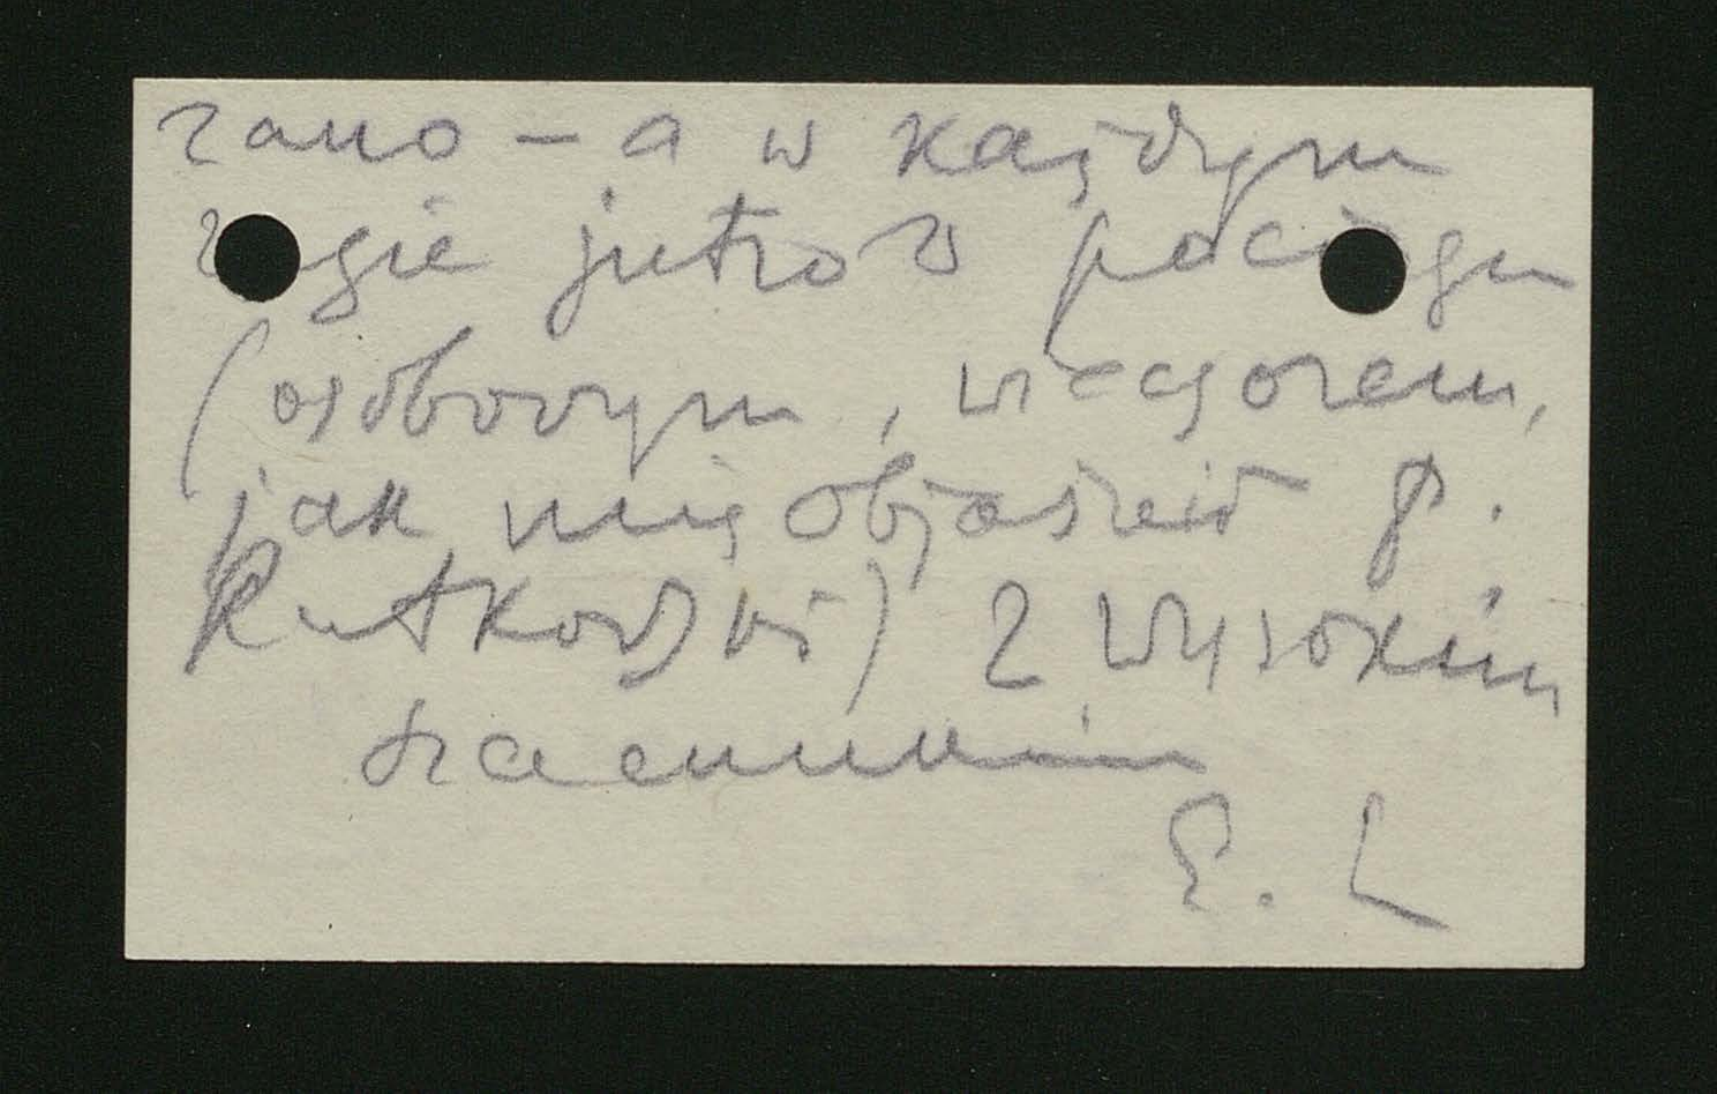 rano – a w każdym
razie jutro w pociągu
(osobowym, wieczorem,
jak mię objaśnił p.
Rutkowski) z wysokim
szacunkiem
E. L